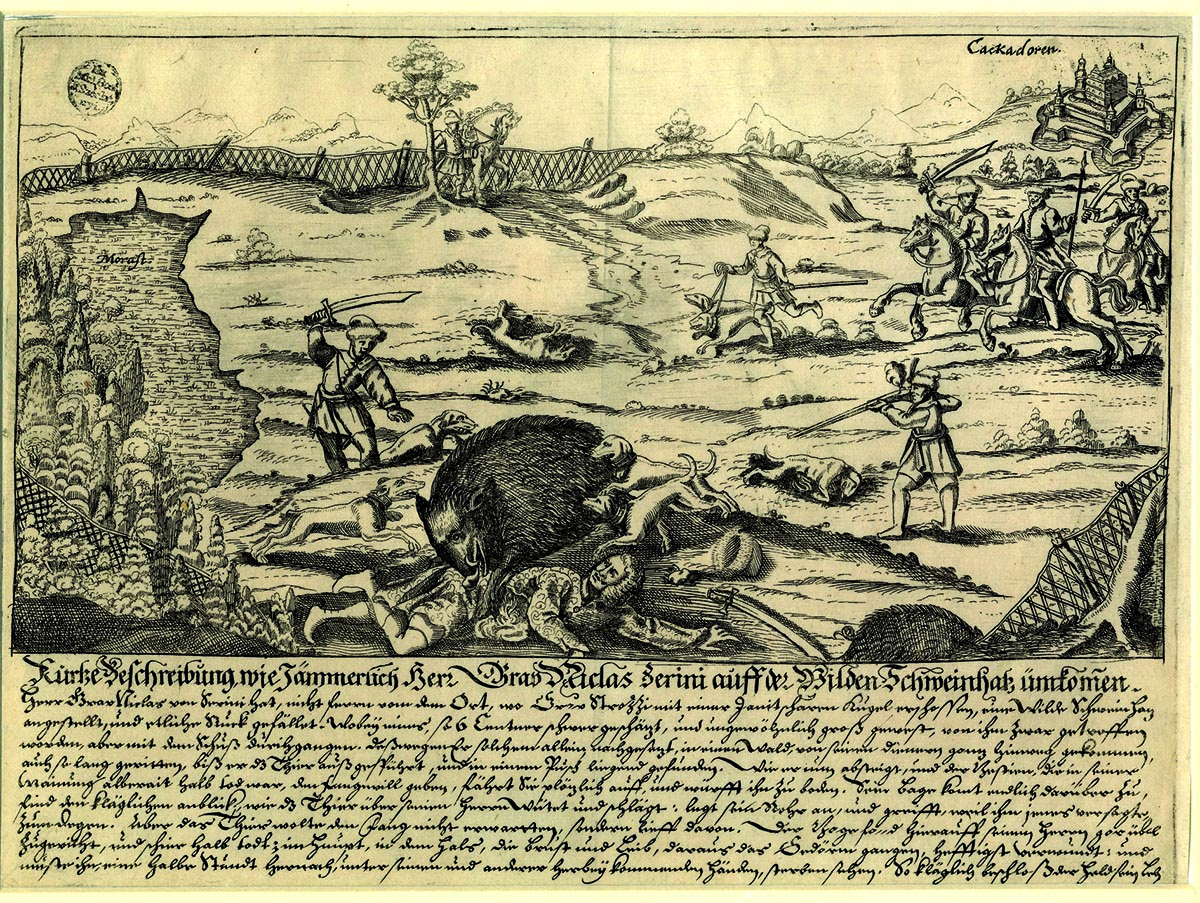 Cackadoren.
Morast.
Kurtze Beschreibung, wie Jämmerlich Herr Graf Niclas Serini auff der Wilden Schweinhatz ümkom̃en.
Herr Graf Niclas von Serin hat, nicht ferrn von dem Ort, wo Graf Strozzi mit einer Janitscharen Kugel erschossen, eine Wilde Schwein Hatz
angestellt, und etliche Stuck gefället. Wobey eines, so 6 Centner schwer geschätzt, und ungewöhnlich groß gewest, von ihm zwar getroffen
worden, aber mit dem Schuß durchgangen. Deßwegen Er solchem allein nachgesetzt, in einen Wald, von seinen dienern gantz hinweg gekommen,
auch so lang geritten, biß er dz Thier außgespührt, und in einem Pusch ligend gefunden. Wie er nun absteigt, und der Bestien, die in seiner
Mainung alberait halb tod war, den Fang will geben, fährt Sie plötzlich auff, und wirfft ihn zu boden. Sein Page kömt endlich darüber zu,
find den kläglichen anblick, wie dz Thier über seinen Herrn wütet und schlägt: legt sein Rohr an, und greifft, weil ihm jenes versagte,
zum Degen. Aber das Thier wolte den Fang nicht erwartten, sondern lieff davon. Der Page fand hierauff seinen Herren gar übel
zugericht, und schier halb todt: im Haupt, in dem Hals, die Brust und Leib, daraus das Gedörm gangen, hefftigst verwundt: und
muste ihn, eine halbe Stundt hernach, unter seinen und anderer herbey kommenden Händen, sterben sehen. So kläglich beschloß der Held sein Leb